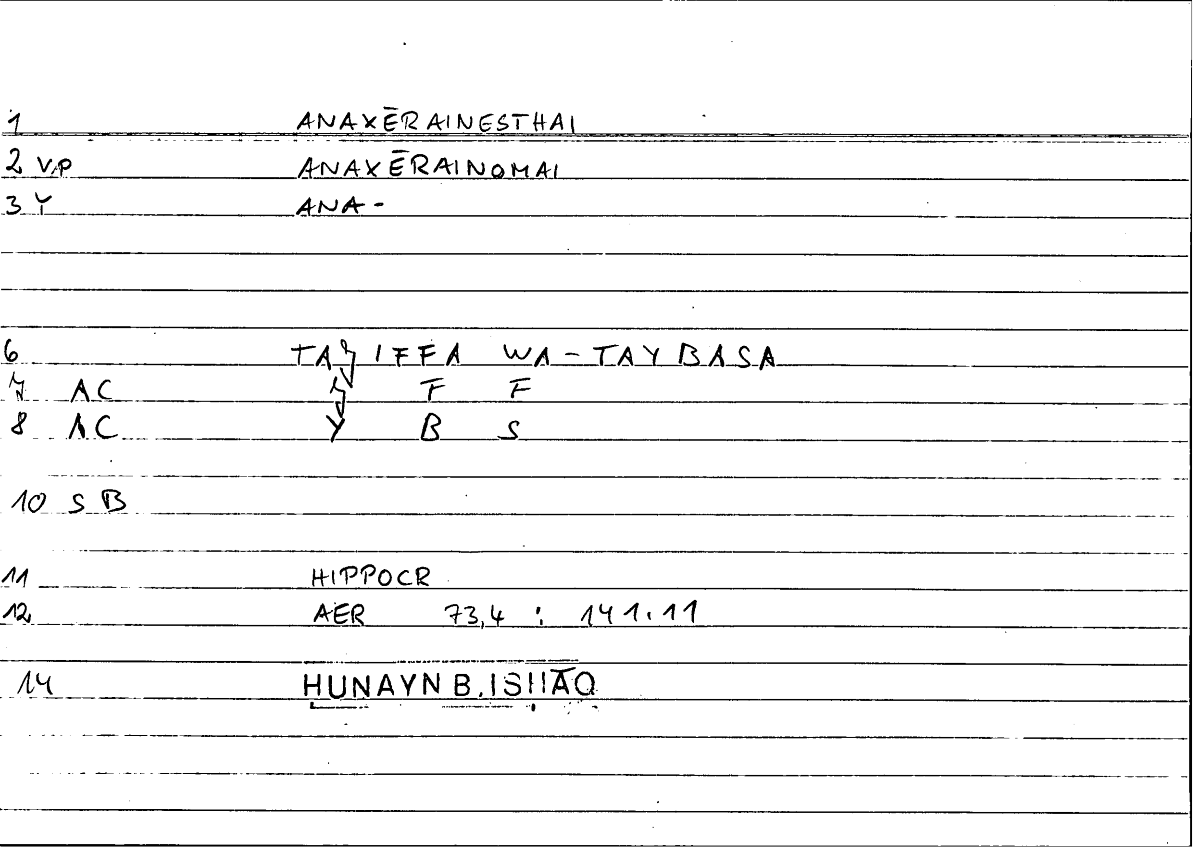 1 ANAXĒRAINESTHAI
2 V.P ANAXĒRAINOMAI
3 Y ANA-
6 TAJIFFA WA-TAYBASA
7 AC J F F
8 AC Y B S
10 S B
11 HIPPOCR
12 AER 73,4 : 141.11
14 ḤUNAYN B. ISḤĀQ